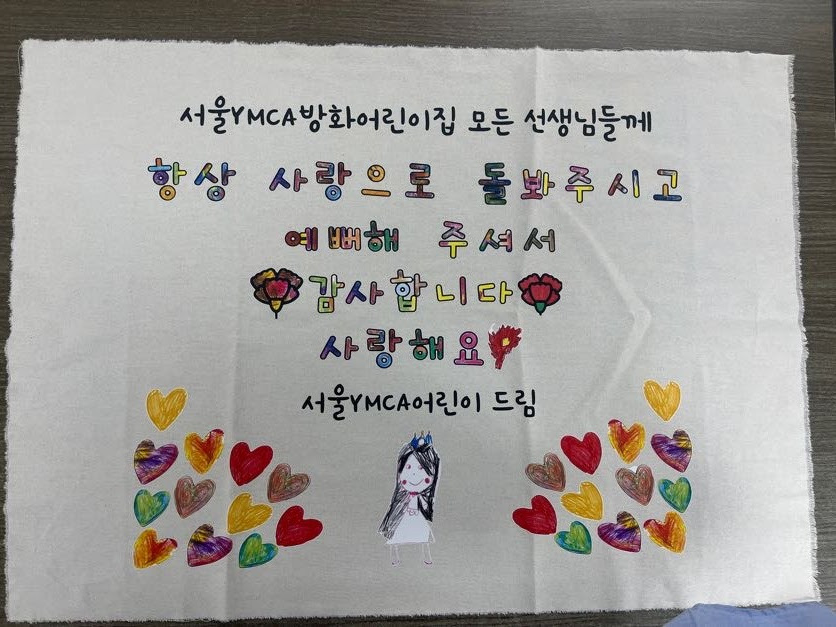 서울YMCA방화어린이집 모든 선생님들께
항상 사랑으로 돌봐주시고
예뻐해 주셔서
감사합니다
사랑해요
서울YMCA어린이 드림